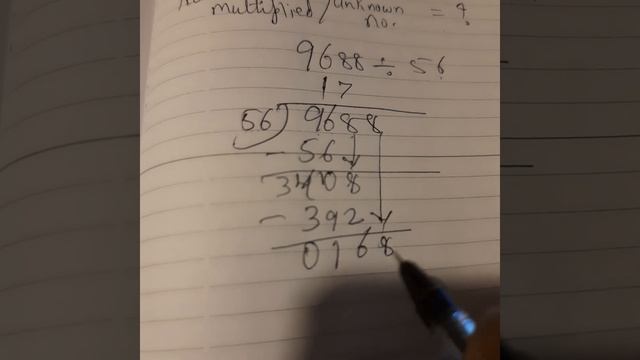 multiplied/unknown = ?
no.
9688 ÷ 56
17
56)9688
- 56
3408
- 392
0168